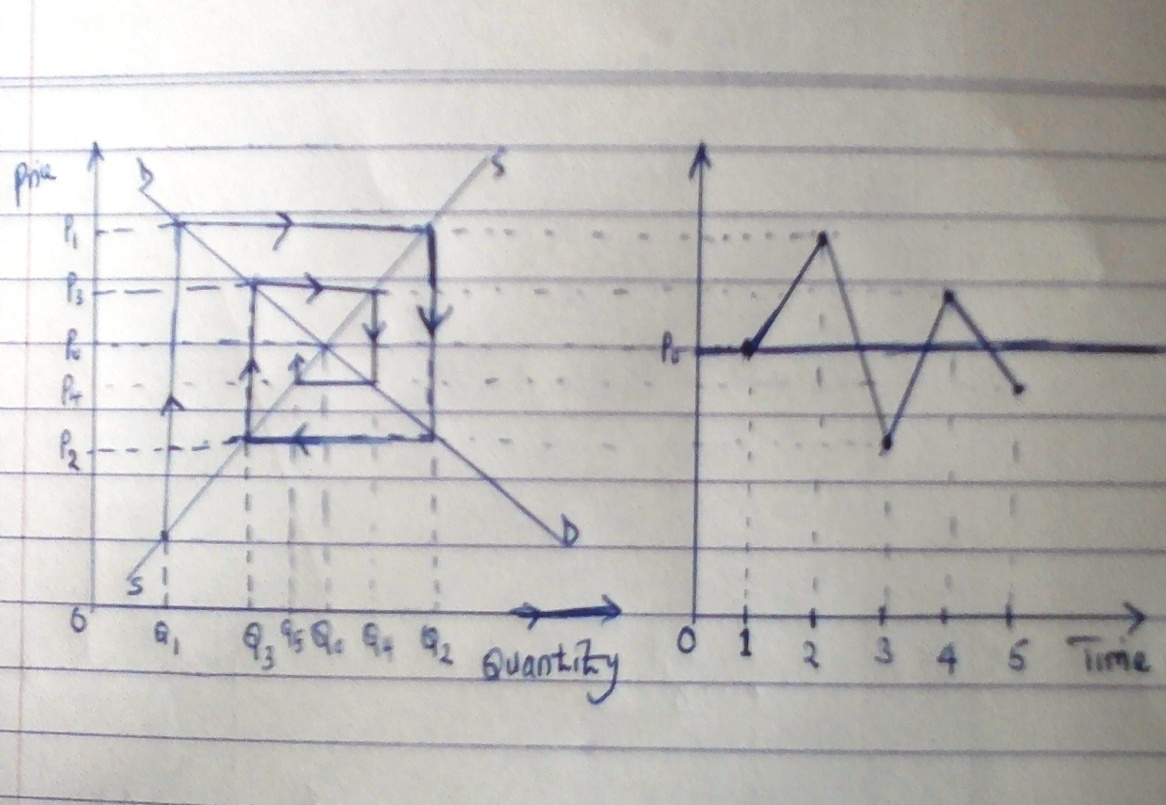 Price
D
S
P₁
P₃
P₀
P₄
P₂
S
D
0
Q₁
Q₃
Q₅
Q₀
Q₄
Q₂
Quantity
P₀
0
1
2
3
4
5
Time